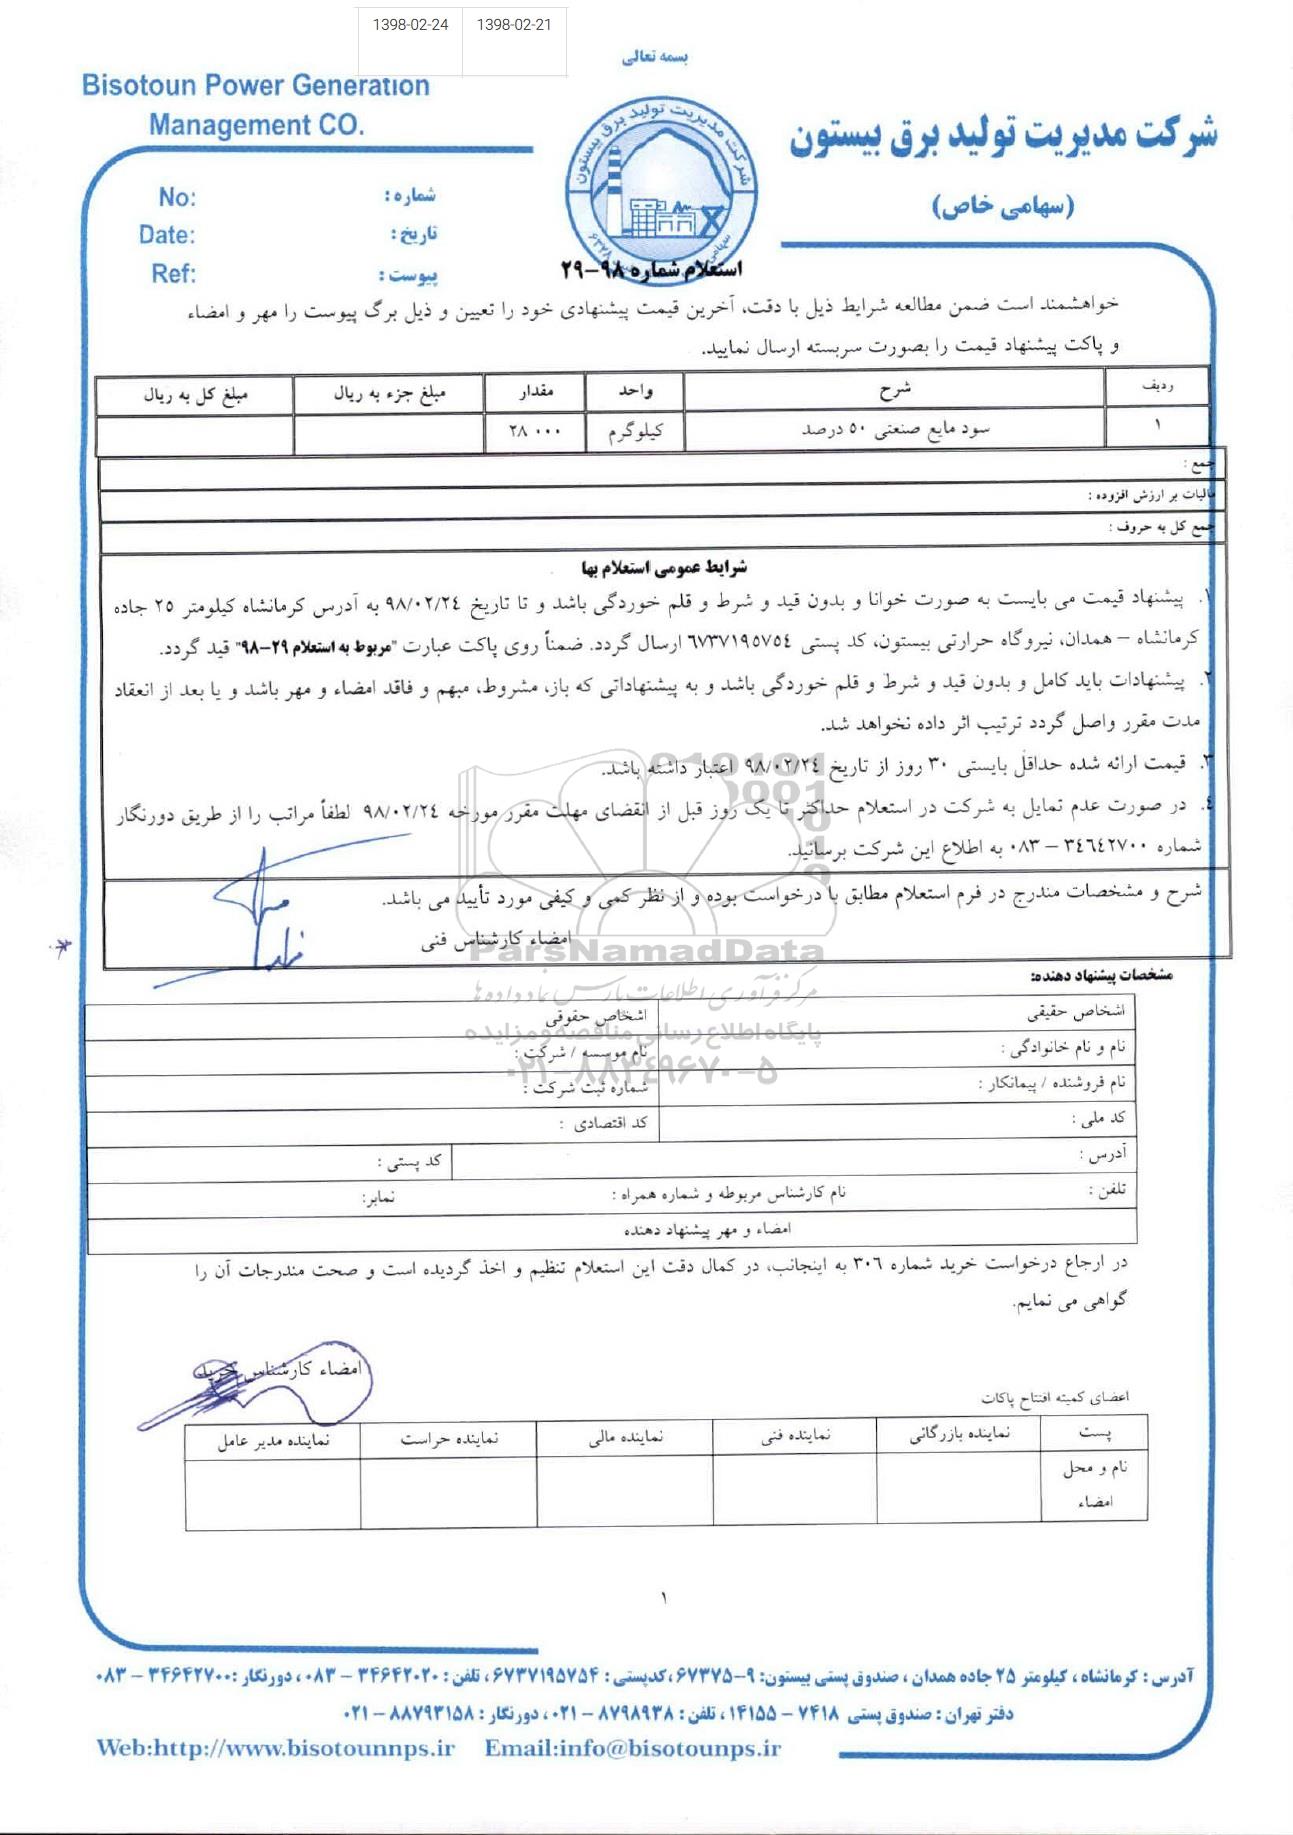 1398-02-24 1398-02-21
بسمه تعالی
Bisotoun Power Generation
Management CO.
شرکت مدیریت تولید برق بیستون
(سهامی خاص)
شرکت مدیریت تولید برق بیستون
No: شماره :
Date: تاریخ :
Ref: پیوست :
استعلام شماره ۹۸-۲۹
خواهشمند است ضمن مطالعه شرایط ذیل با دقت، آخرین قیمت پیشنهادی خود را تعیین و ذیل برگ پیوست را مهر و امضاء
و پاکت پیشنهاد قیمت را بصورت سربسته ارسال نمایید.
ردیف شرح واحد مقدار مبلغ جزء به ریال مبلغ کل به ریال
۱ سود مایع صنعتی ۵۰ درصد کیلوگرم ۲۸۰۰۰
جمع :
مالیات بر ارزش افزوده :
جمع کل به حروف :
شرایط عمومی استعلام بها
۱. پیشنهاد قیمت می بایست به صورت خوانا و بدون قید و شرط و قلم خوردگی باشد و تا تاریخ ۹۸/۰۲/۲٤ به آدرس کرمانشاه کیلومتر ۲۵ جاده
کرمانشاه – همدان، نیروگاه حرارتی بیستون، کد پستی ٦۷۳۷۱۹۵۷۵٤ ارسال گردد. ضمناً روی پاکت عبارت "مربوط به استعلام ۲۹-۹۸" قید گردد.
۲. پیشنهادات باید کامل و بدون قید و شرط و قلم خوردگی باشد و به پیشنهاداتی که باز، مشروط، مبهم و فاقد امضاء و مهر باشد و یا بعد از انعقاد
مدت مقرر واصل گردد ترتیب اثر داده نخواهد شد.
۳. قیمت ارائه شده حداقل بایستی ۳۰ روز از تاریخ ۹۸/۰۲/۲٤ اعتبار داشته باشد.
٤. در صورت عدم تمایل به شرکت در استعلام حداکثر تا یک روز قبل از انقضای مهلت مقرر مورخه ۹۸/۰۲/۲٤ لطفاً مراتب را از طریق دورنگار
شماره ۳٤٦٤۲۷۰۰ – ۰۸۳ به اطلاع این شرکت برسانید.
شرح و مشخصات مندرج در فرم استعلام مطابق با درخواست بوده و از نظر کمی و کیفی مورد تأیید می باشد.
امضاء کارشناس فنی
ParsNamadData
مرکز فرآوری اطلاعات پارس نماد داده ها
پایگاه اطلاع رسانی مناقصه و مزایده
۰۲۱-۸۸۳۴۹۶۷۰-۵
مشخصات پیشنهاد دهنده:
اشخاص حقیقی اشخاص حقوقی
نام و نام خانوادگی : نام موسسه / شرکت :
نام فروشنده / پیمانکار : شماره ثبت شرکت :
کد ملی : کد اقتصادی :
آدرس : کد پستی :
تلفن : نام کارشناس مربوطه و شماره همراه : نمابر:
امضاء و مهر پیشنهاد دهنده
در ارجاع درخواست خرید شماره ۳۰٦ به اینجانب، در کمال دقت این استعلام تنظیم و اخذ گردیده است و صحت مندرجات آن را
گواهی می نمایم.
امضاء کارشناس خرید
اعضای کمیته افتتاح پاکات
پست نماینده بازرگانی نماینده فنی نماینده مالی نماینده حراست نماینده مدیر عامل
نام و محل
امضاء
۱
آدرس : کرمانشاه ، کیلومتر ۲۵ جاده همدان ، صندوق پستی بیستون: ۹-۶۷۳۷۵ ،کدپستی : ۶۷۳۷۱۹۵۷۵۴ ، تلفن : ۳۴۶۴۲۰۲۰ – ۰۸۳ ، دورنگار :۳۴۶۴۲۷۰۰ – ۰۸۳
دفتر تهران : صندوق پستی ۷۴۱۸ – ۱۴۱۵۵ ، تلفن : ۸۷۹۸۹۳۸ – ۰۲۱ ، دورنگار : ۸۸۷۹۳۱۵۸ – ۰۲۱
Web:http://www.bisotounnps.ir Email:info@bisotounps.ir